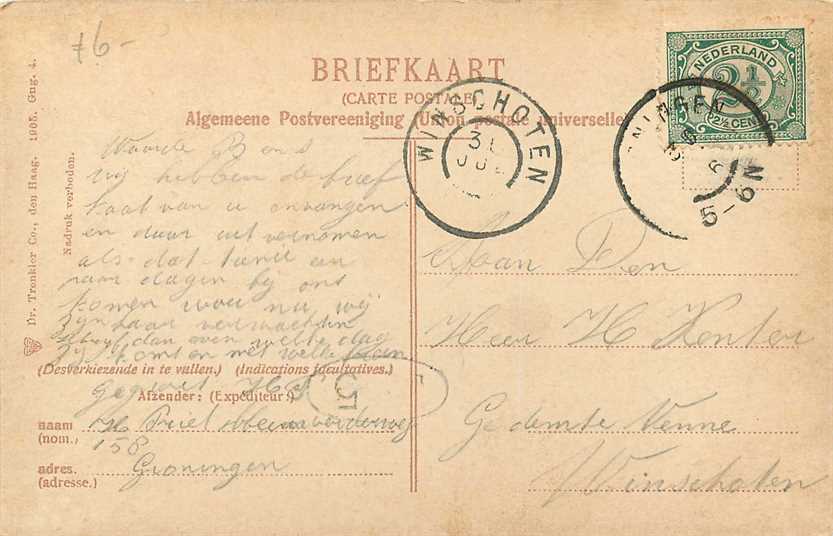 f6-
BRIEFKAART
(CARTE POSTALE)
Algemeene Postvereeniging (Union postale universelle)
NEDERLAND
2½
2½ CENT
WINSCHOTEN
31
JUL
NINGEN
5-6N
Dr. Trenkler Co., den Haag. 1905. Gng. 4.
Nadruk verboden.
Waarde B ons
wij hebben de brief
kaat van u onvangen
en daar uit vernomen
als dat tante een
paar dagen bij ons
komen wou nu wij
zijn haar verwachten
dan over welke dag
zij komt en met welke
(Desverkiezende in te vullen.) (Indications facultatives.)
Gegroet H
Afzender: (Expéditeur:)
5
naam
(nom.)
H Briet
158
adres.
(adresse.)
Groningen
Aan Den
Heer H Kenter
Gedemte Venne
Winschoten